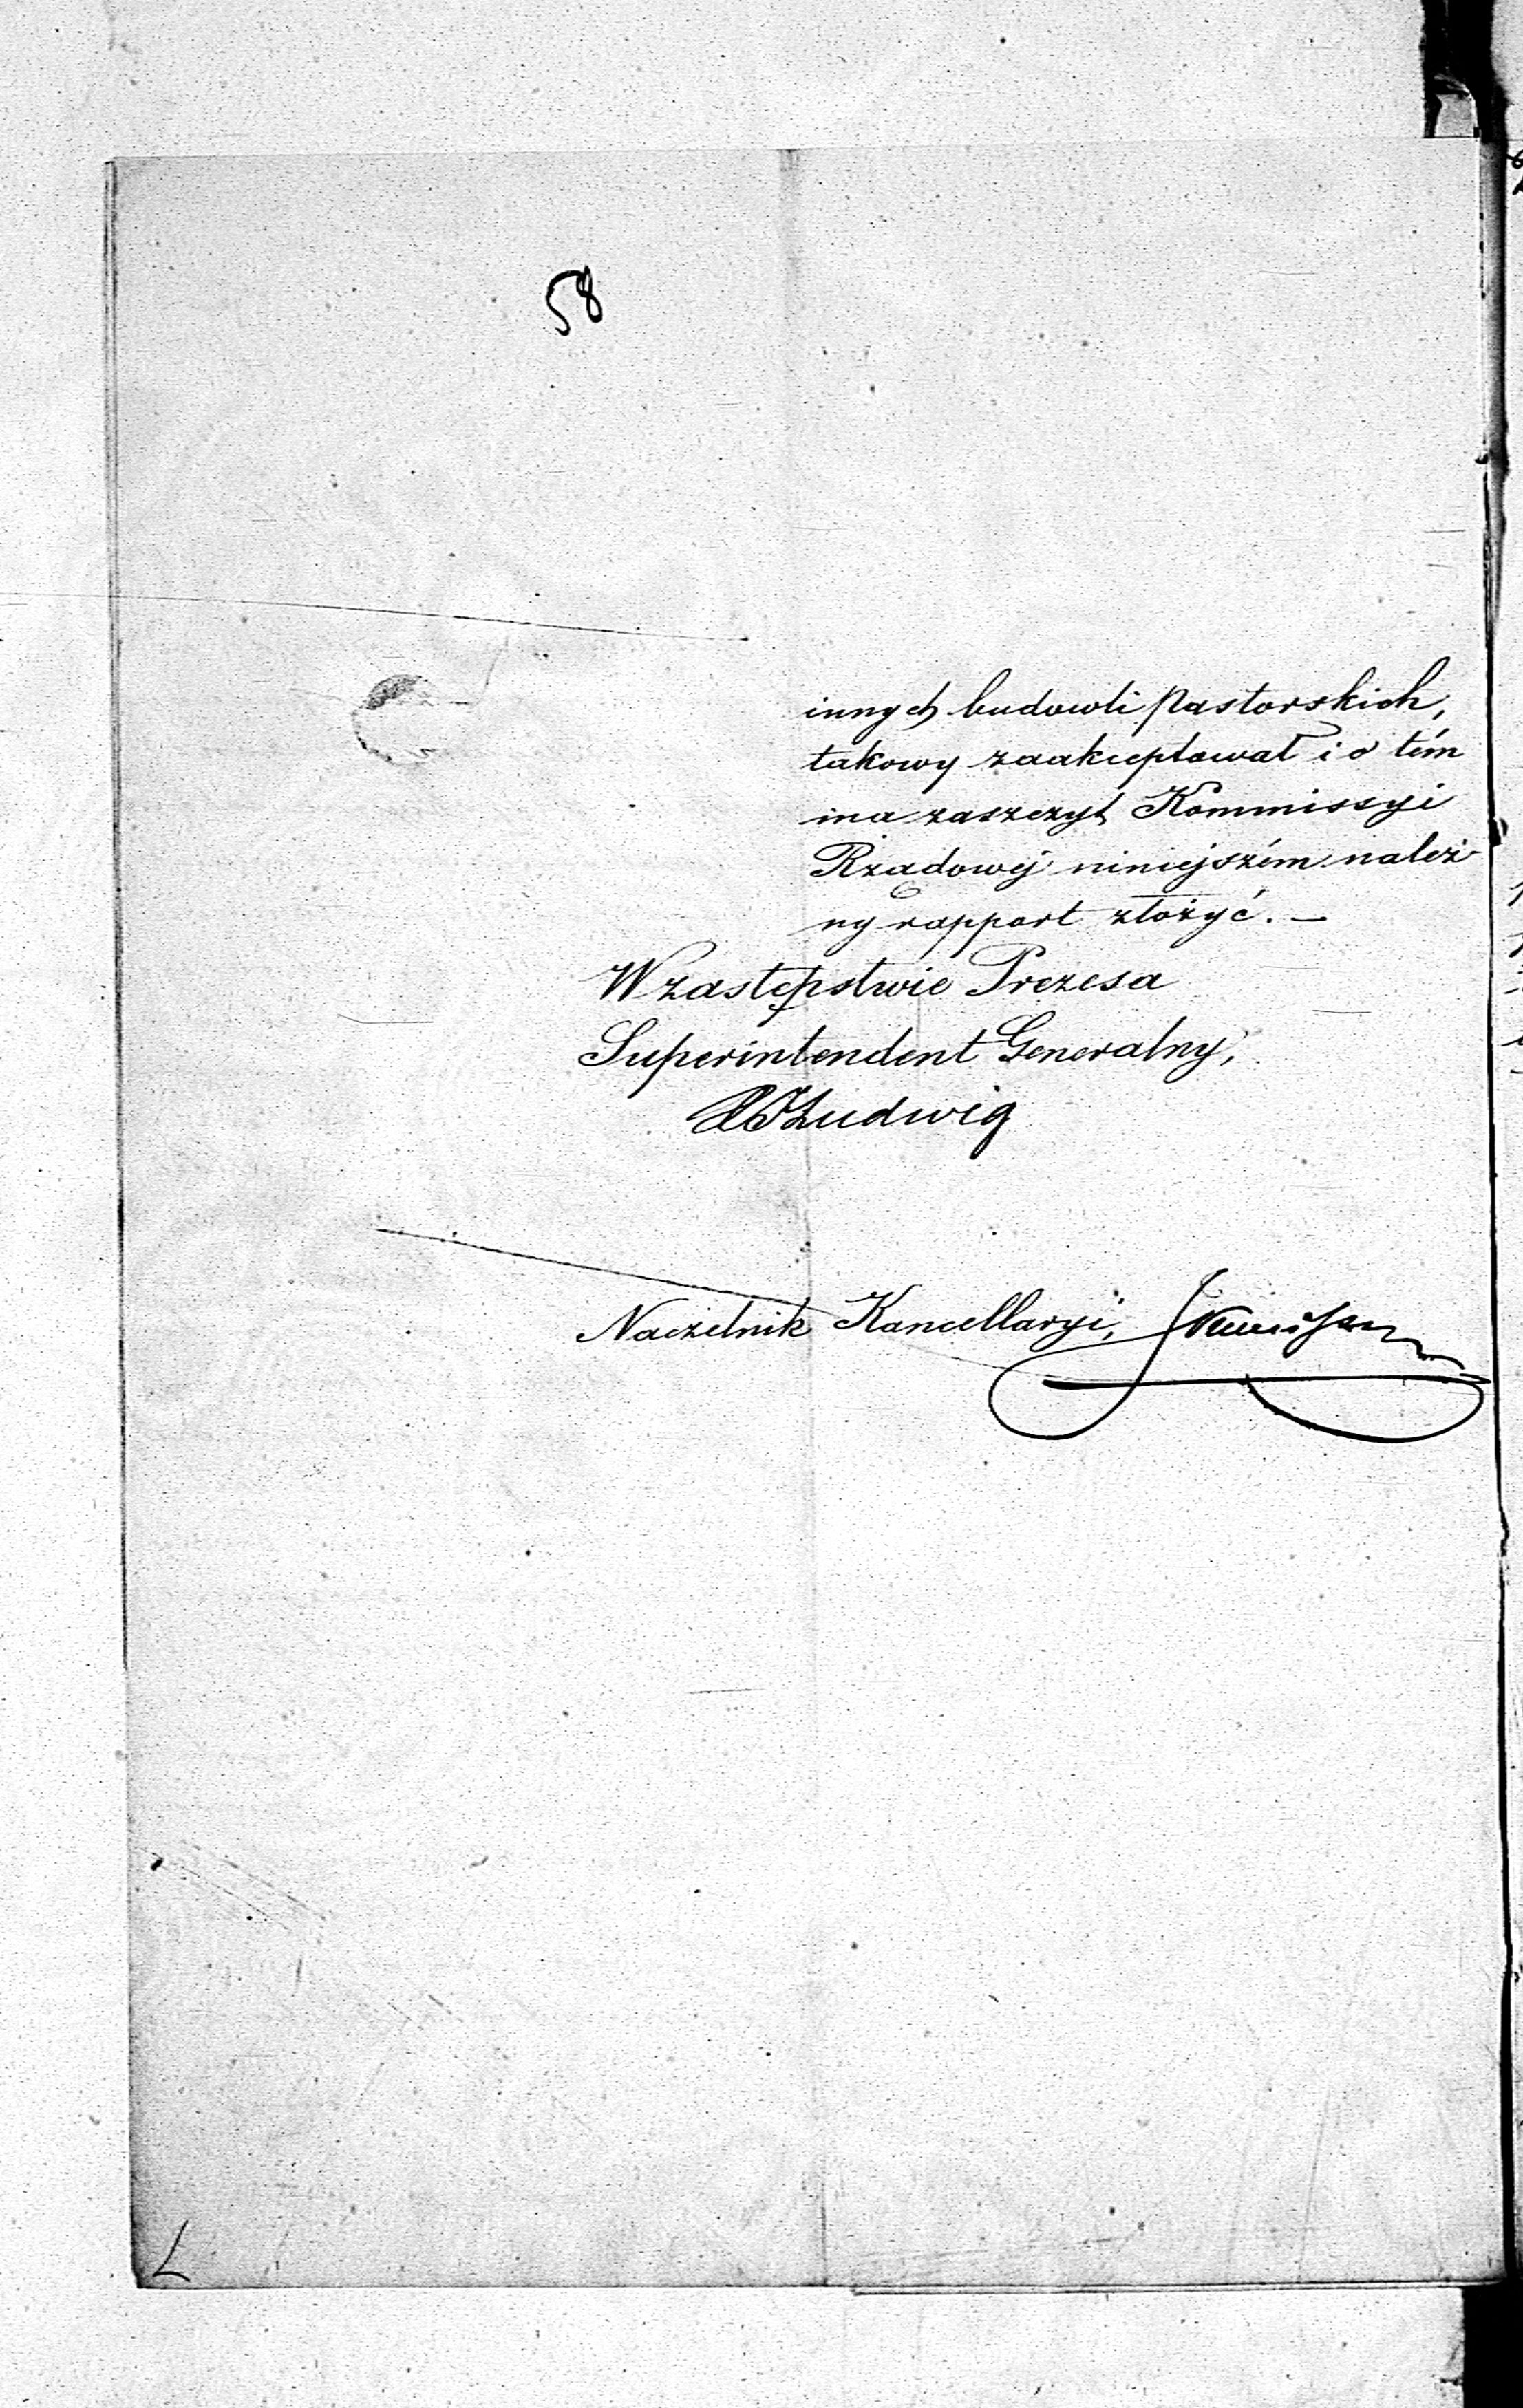 58
innych budowli Pastorskich,
takowy zaakceptował i o tém
ma zaszczyt Kommissyi
Rządowéj niniejszém należ
ny rapport złożyć. —
W zastępstwie Prezesa
Superintendent Generalny,
Ludwig
Naczelnik Kancellaryi,
L